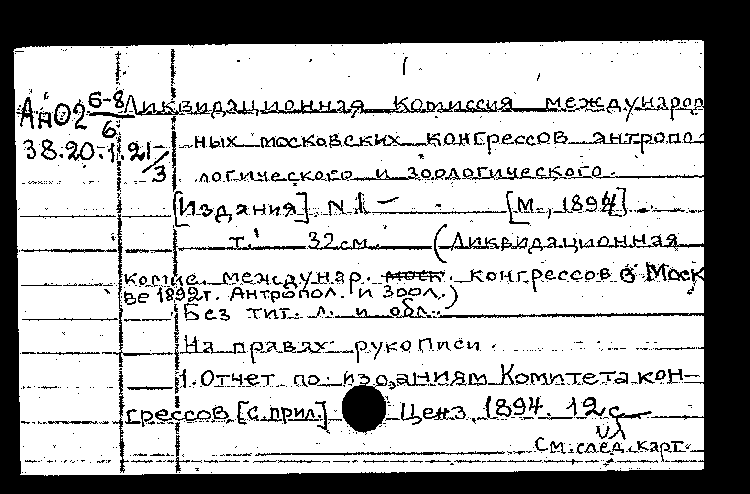 Ан02 6-8/6 Ликвидационная комиссия международ
38.20.1.21/3 ных московских конгрессов антропо-
логического и зоологического.
[Издания] N 1 – . [М., 1894].
т. 32 см. (Ликвидационная
комис. междунар. моск. конгрессов в Моск
ве 1892 г. Антропол. и Зоол.)
Без тит. л. и обл.
На правах рукописи.
1. Отчет по изданиям Комитета кон-
грессов [с прил.] Ценз. 1894. 12 с
ил
См. след. карт.